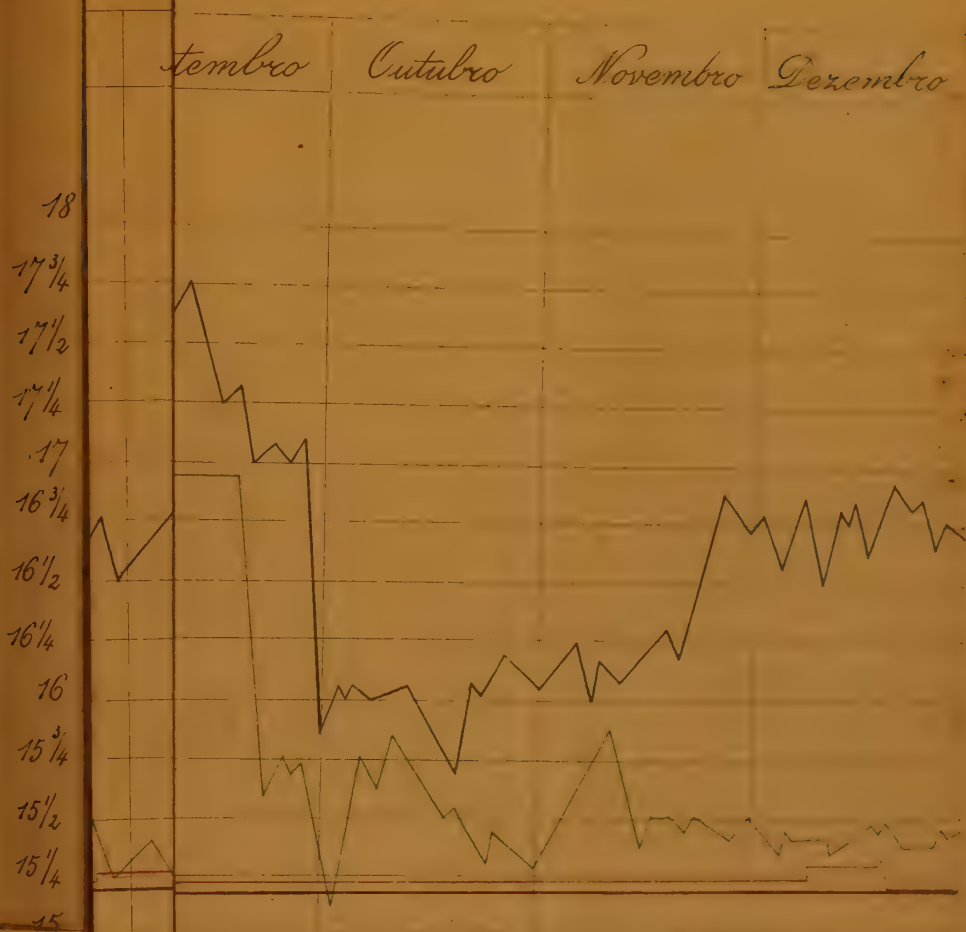 tembro Outubro Novembro Dezembro
18
17 3/4
17 1/2
17 1/4
17
16 3/4
16 1/2
16 1/4
16
15 3/4
15 1/2
15 1/4
15